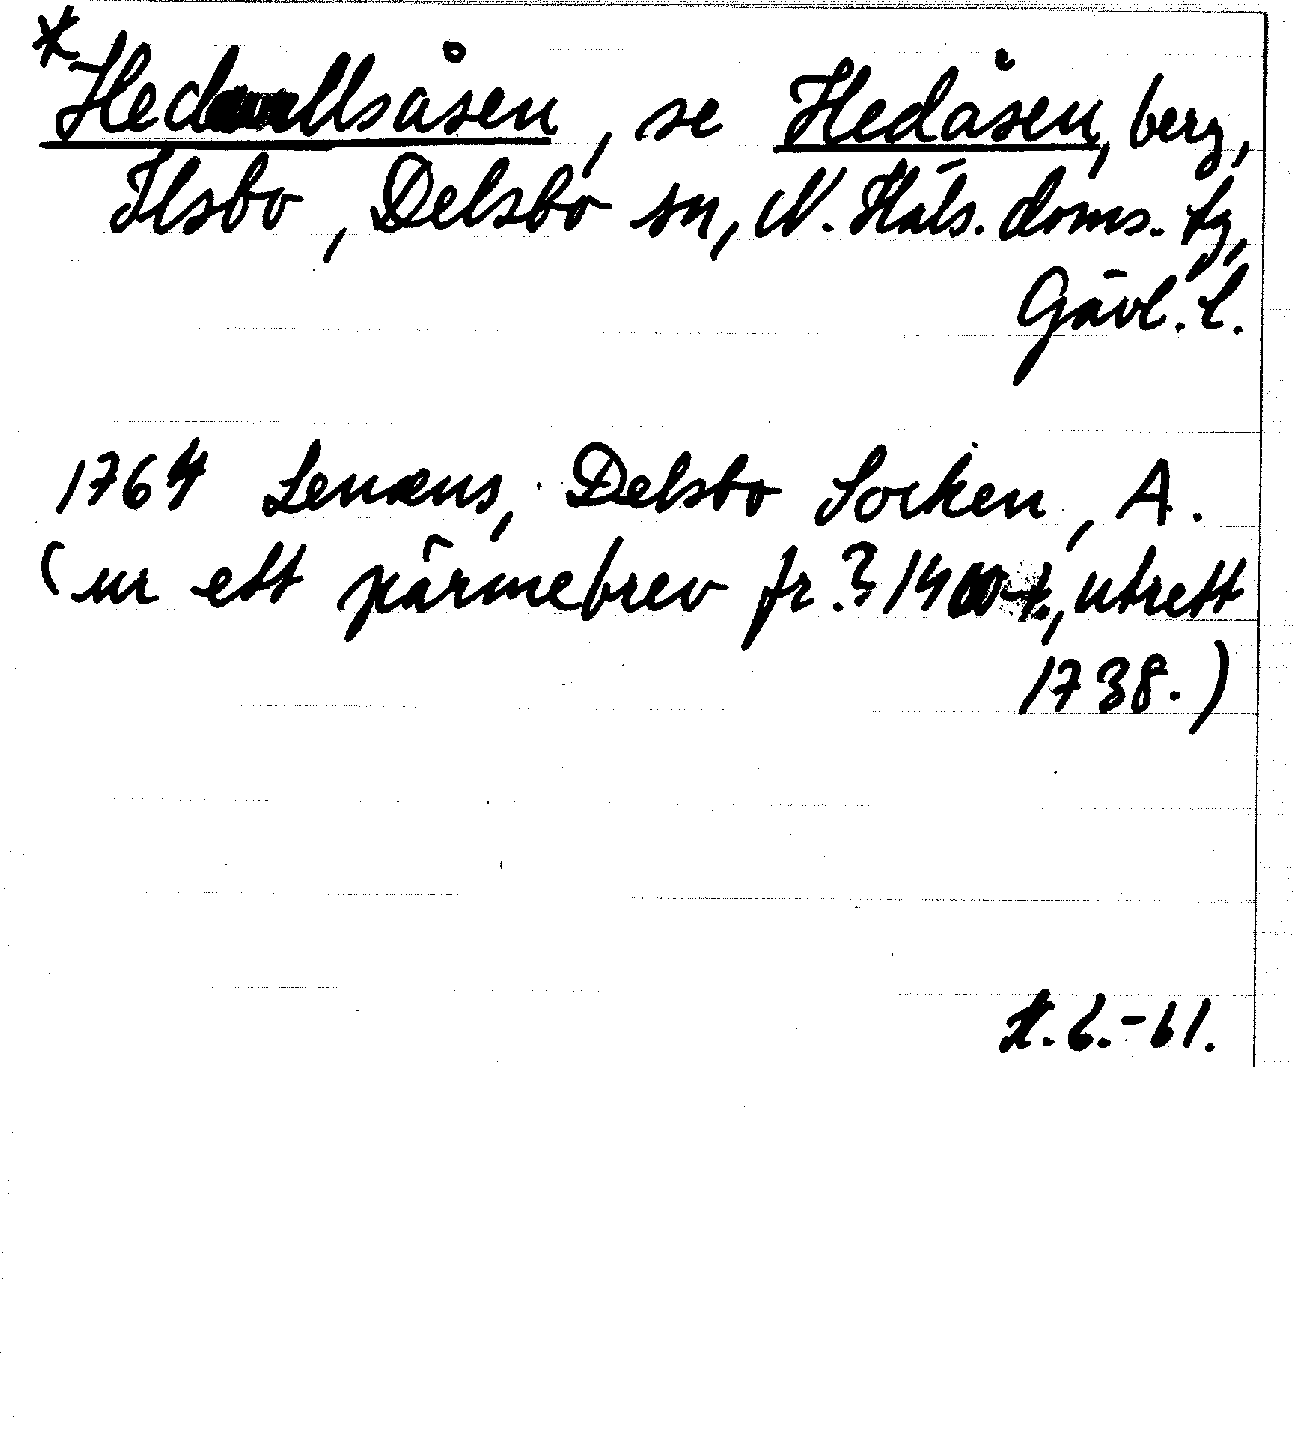 * Hedvallsåsen, se Hedåsen, berg,
Ilsbo, Delsbo sn, N. Häls. doms. tg,
Gävl. l.
1764 Lenæus, Delsbo Socken, A.
(ur ett pärmebrev fr. ? 1400-t., utrett
1738.)
6.-61.